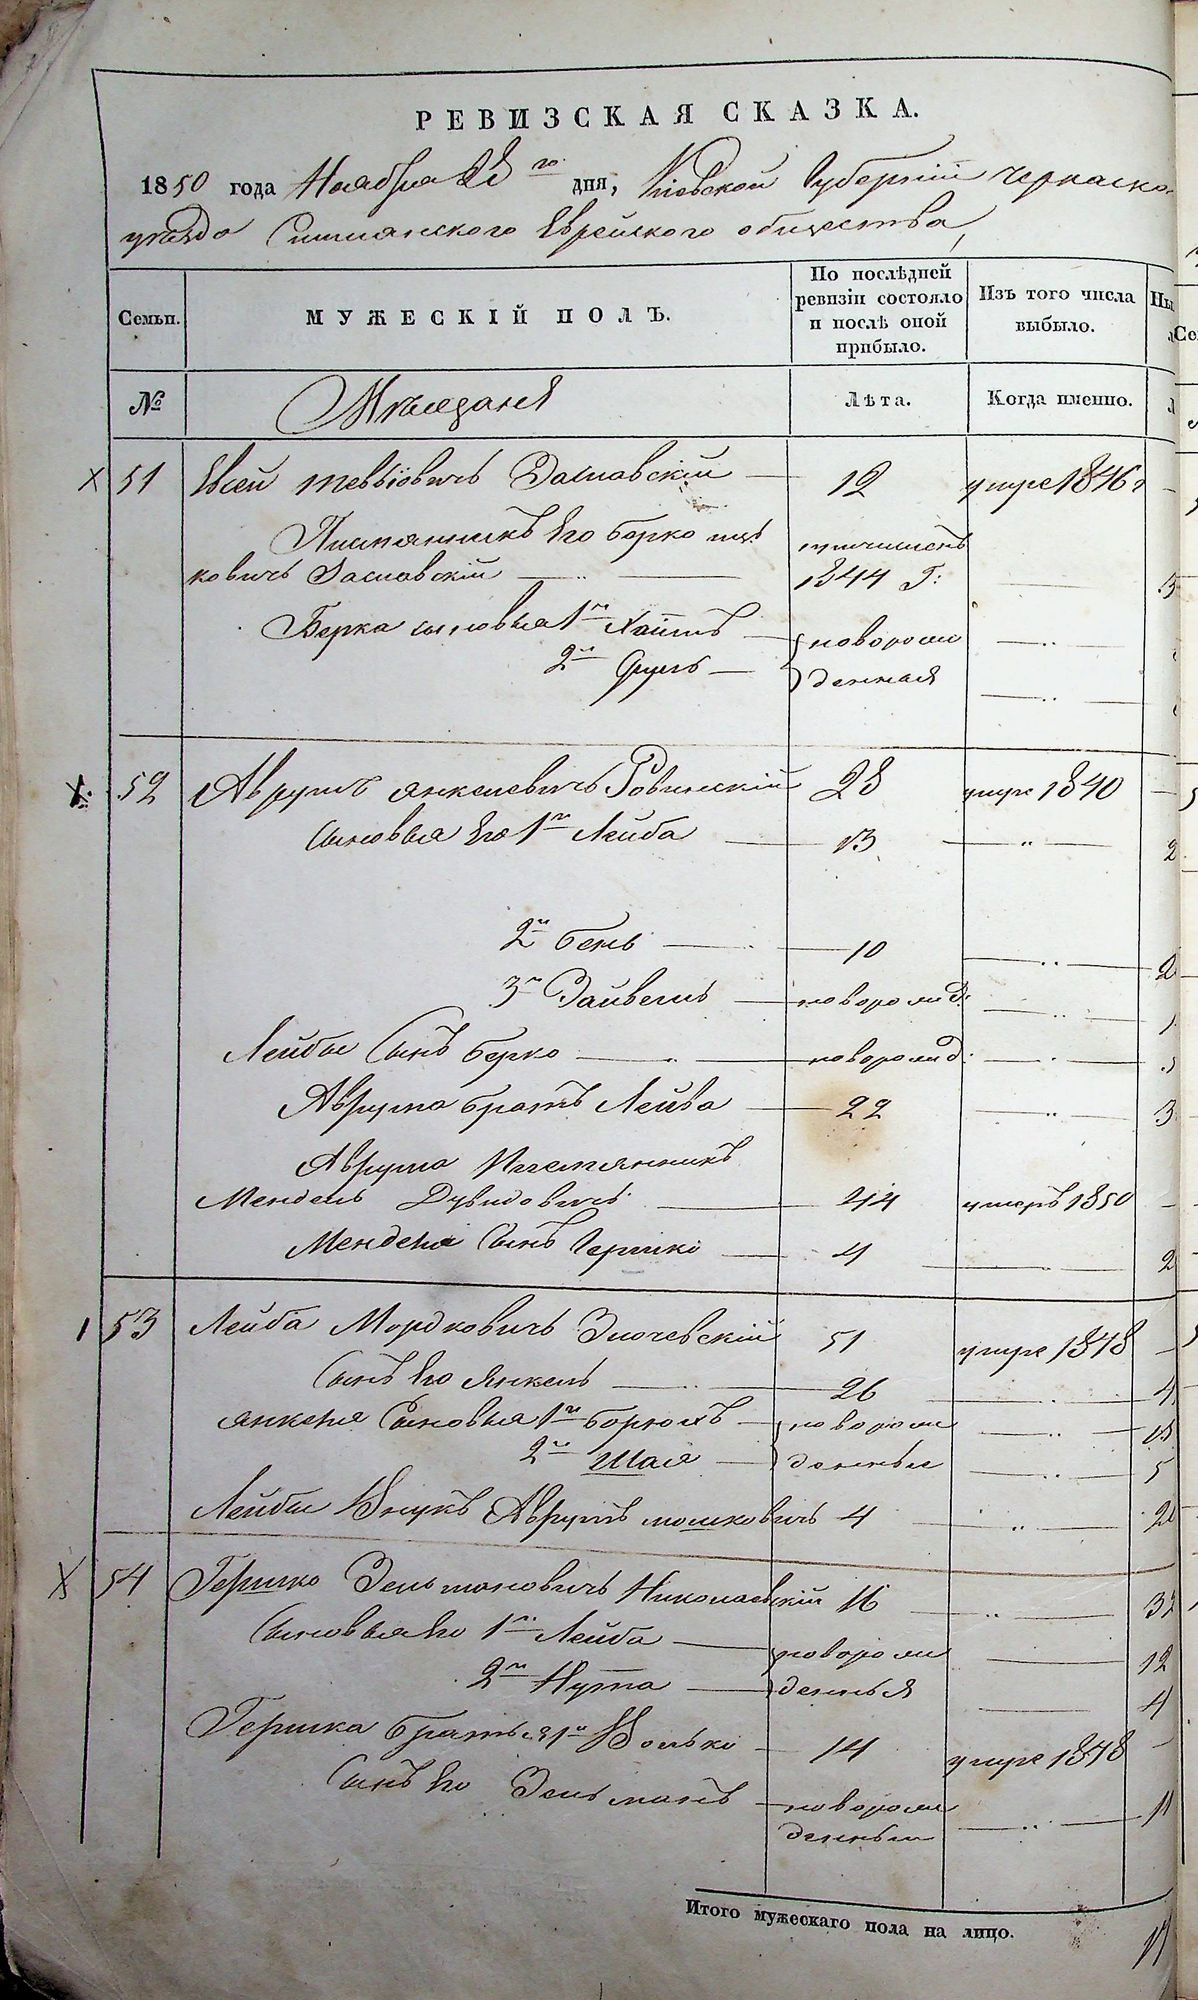 РЕВИЗСКАЯ СКАЗКА.
1850 года Ноября 28го дня, Киевской Губерніи Черкаско
уѣзда Смилянского Еврейского общества,
Семьи.
МУЖЕСКІЙ ПОЛЪ.
По послѣдней ревизіи состояло и послѣ оной прибыло.
Изъ того числа выбыло.
№
Мѣщаня
Лѣта.
Когда именно.
51 Евсей Тевыовичь Заславскій — 12 умре 1846 г
Племянникъ Его Берко Иц причислен
ковичь Заславскій 1844 Г:
Берка сыновья 1й Хаимъ — новорож
2й Сруль —денная
52 Аврумъ Янкелевичь Ровинскій 28 умре 1840
Сыновья Его 1й Лейба — 13 2
2й Бень — 10 2
3й Зайвель — новорожд: 1
Лейбы Сынъ Берко — новорожд:
Аврума братъ Лейба — 22 3
Аврума Племянникъ
Мендель Дувидовичь 44 умеръ 1850
Менделя Сынъ Гершко — 4 2
53 Лейба Мордковичь Злочевскій 51 умре 1848
Сынъ Его Янкель — 26 4
Янкеля Сыновья 1й Борюхъ — новорож
2й Шая — денные 5
Лейбы Внукъ Аврумъ Мошковичь 4
54 Гершко Зельмановичь Николаевскій 16 32
Сыновья Его 1й Лейба — новорож 12
2й Нута — денныя 4
Гершка братья 1й Волько — 14 умре 1848
Сынъ Его Зельманъ — новорож 11
денный
Итого мужескаго пола на лицо.